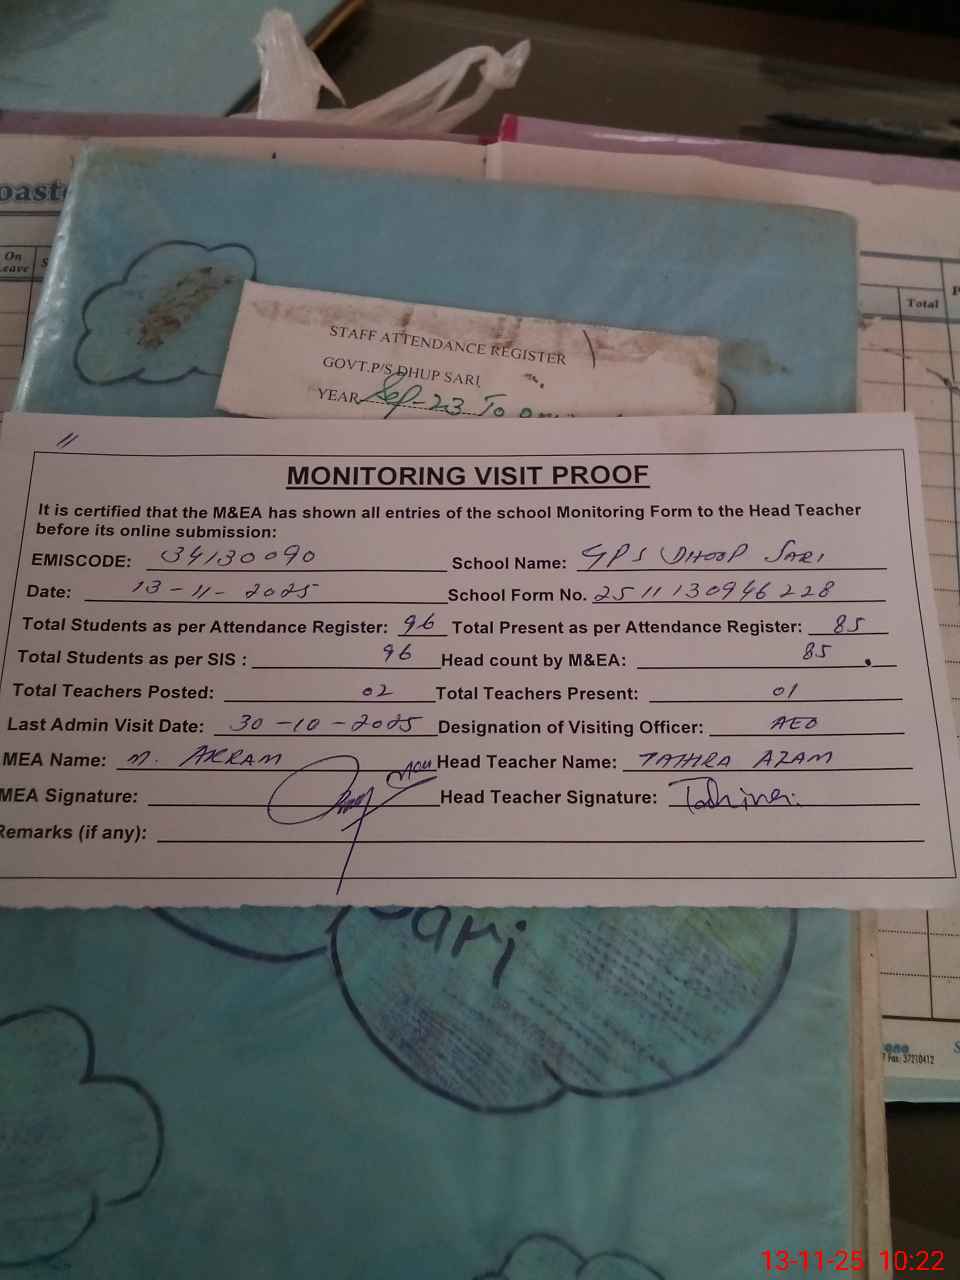 oaste
On
Leave
S
Total
P
STAFF ATTENDANCE REGISTER
GOVT.P/S DHUP SARI
YEAR Sep-23 To
11
MONITORING VISIT PROOF
It is certified that the M&EA has shown all entries of the school Monitoring Form to the Head Teacher
before its online submission:
EMISCODE: 34130090 School Name: GPS DHOOP SARI
Date: 13-11-2025 School Form No. 2511130946228
Total Students as per Attendance Register: 96 Total Present as per Attendance Register: 85
Total Students as per SIS : 96 Head count by M&EA: 85
Total Teachers Posted: 02 Total Teachers Present: 01
Last Admin Visit Date: 30-10-2025 Designation of Visiting Officer: AEO
MEA Name: M. AKRAM Head Teacher Name: TAHIRA AZAM
MEA Signature: Head Teacher Signature: Tahira
Remarks (if any):
Sari
7 Fax: 37210412
13-11-25 10:22